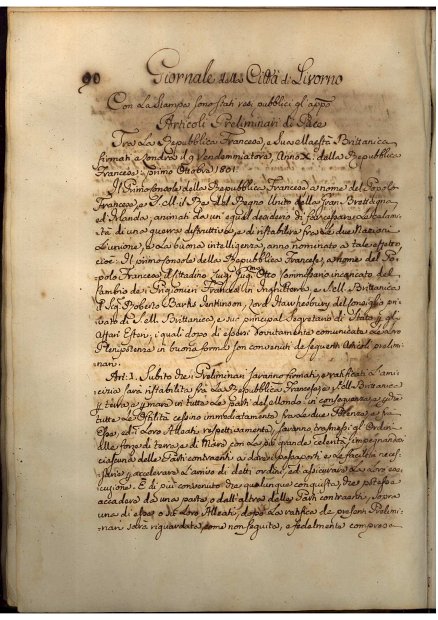 90
Giornale della Città di Livorno
Con la Stampa sono stati resi pubblici gl'appō
Articoli Preliminari di Pace
Tra la Repubblica Francese, e Sua Maestà Brittanica
firmati a Londra il 9 Vendemmiatore, Anno X. della Repubblica
Francese, e primo Ottobre 1801.
Il Primo Console della Repubblica Francese a nome del Popolo
Francese, e S. M. il Re del Regno Unito della Gran Brettagna,
ed Irlanda, animati da un'equal desiderio di far cessare le calami-
tà di una guerra distruttiva, e di ristabilire fra le due Nazioni
L'unione, e la buona intelligenza, anno nominato a tale effetto,
cioè: Il primo Console della Repubblica Francese, a nome del Po-
polo Francese il Cittadino Luigi Gugl. Otto Commissario incaricato del
cambio de i Prigionieri Francesi in Inghilterra, e S. M. Brittanica
il Sig. Roberto Banks Jenkinson, Lord Hawkesbury del consiglio pri-
vato di S. M. Brittanica, e suo principal Segretario di Stato p. gl
Affari Esteri, i quali dopo di essersi dovutamente comunicate le loro
Plenipotenze in buona forma son convenuti de seguenti Articoli prelimi-
nari.
Art. I. Subito che i Preliminari saranno firmati, e ratificati l'ami-
cizia sarà ristabilita fra la Repubblica Francese, e S. M. Brittanica
p. terra, e p. mare in tutte le parti del Mondo: in conseguenza, e p. che
tutte le Ostilità cessino immediatamente fra le due Potenze, e fra
esse, ed i Loro Alleati respettivamente, saranno trasmessi gl'Ordini
alle forze di terra, e di Mare con la più grande celerità, impegnandosi
ciascuna delle Parti contraenti a dare i passaporti, e le facilità neces-
sarie p. accelerare l'arrivo di detti ordini, ed assicurare la loro ese-
cuzione. È di più convenuto che qualunque conquista, che potesse
accadere da una parte, o dall'altra delle Parti contraenti, sopra
una di esse, o i Loro Alleati, dopo la ratifica de presenti Prelimi-
nari sarà riguardata, come non seguita, e fedelmente compresa